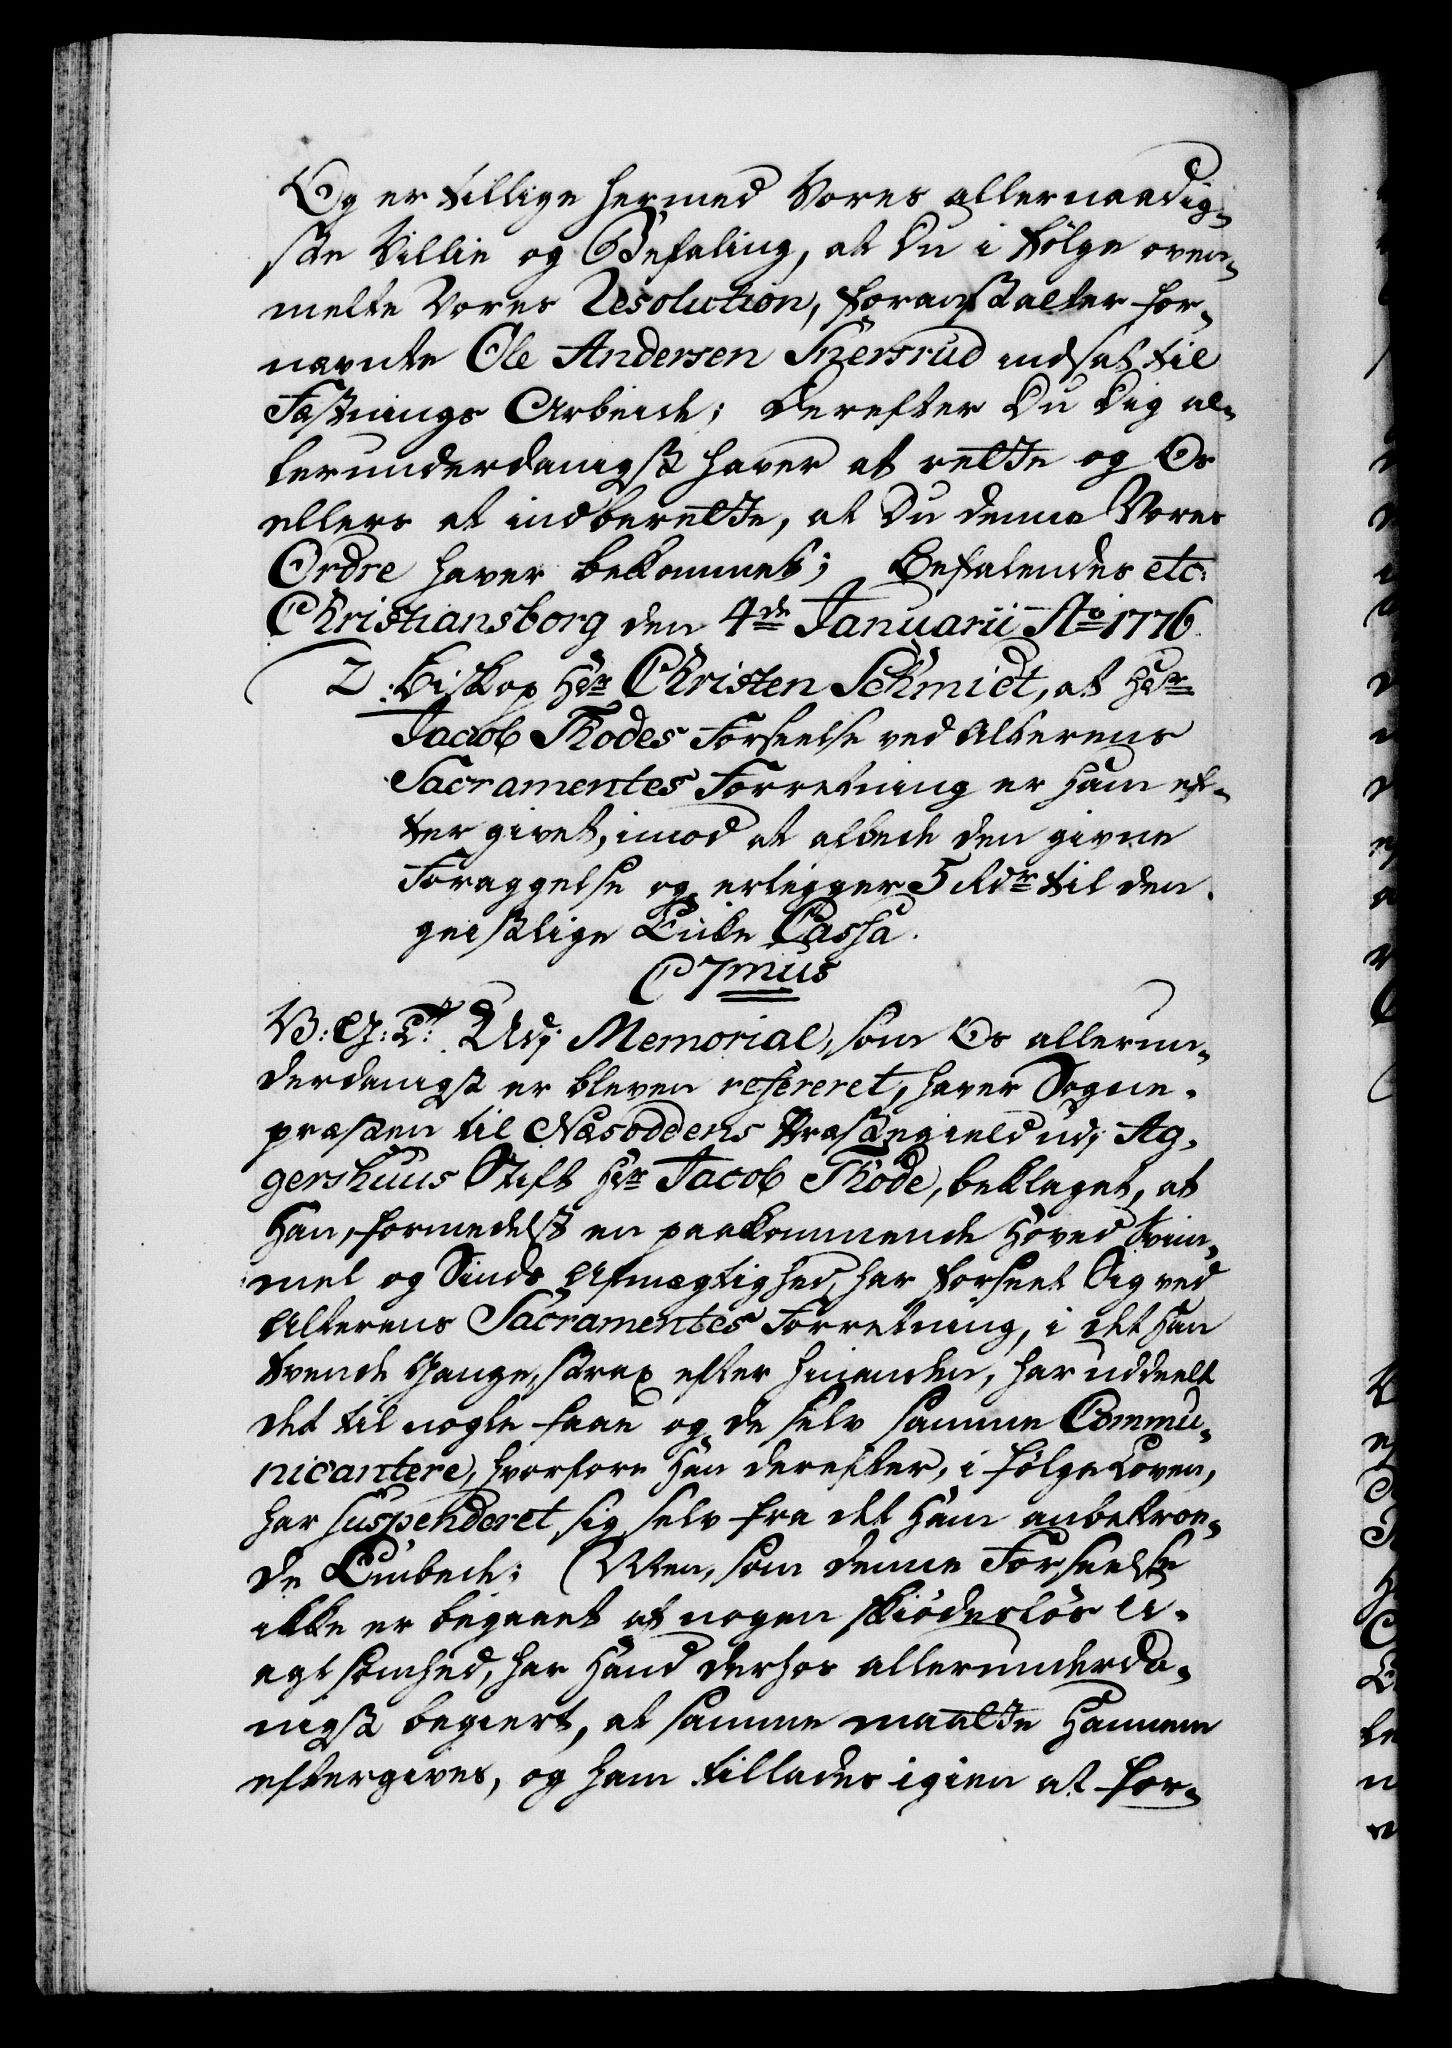 Og er tillige hermed Vores allernaadig-
ste Villie og Befaling, at Du i følge oven-
melte Vores Resolution, foranstalter for-
nævnte Ole Andersen Snersrud indsat til
Fæstnings Arbeide; Derefter Du Dig al-
lerunderdanigst haver at rette og Os
ellers at indberette, at Du denne Vores
Ordre haver bekommet; Befalendes etc:
Christiansborg den 4de Januarii Ao 1776.
2. Biskop Hr Christen Schmidt, at Hr
Jacob Thodes Forseelse ved Alterens
Sacramentes Forretning er ham ef-
ter givet, imod at afbede den givne
Forargelse og erlegger 5 Rdr til den
geistlige Enke Cassa.
C 7mus
V: G: T: Udj Memorial, som Os allerun-
derdanigst er bleven refereret, haver Sogne-
præsten til Næsoddens Præstegield udj Ag-
gershuus Stift Hr Jacob Thode, beklaget, at
Han, formedelst en paakommende Hoved Svim-
mel og Sinds Afmægtighed, har forseet Sig ved
Alterens Sacramentes Forretning, i det Han
tvende Gange, strax efter hinanden, har uddeelt
det til nogle faae og de selv samme Commu-
nicantere, hvorfore Han derefter, i følge Loven,
har suspenderet sig selv fra det Ham anbetroe-
de Embede; Men, som denne Forseelse
ikke er begaaet af nogen skiødesløs U-
agtsomhed, har Hand derhos allerunderda-
nigst begiert, at samme maatte Hannem
eftergives, og ham tillades igien at for-